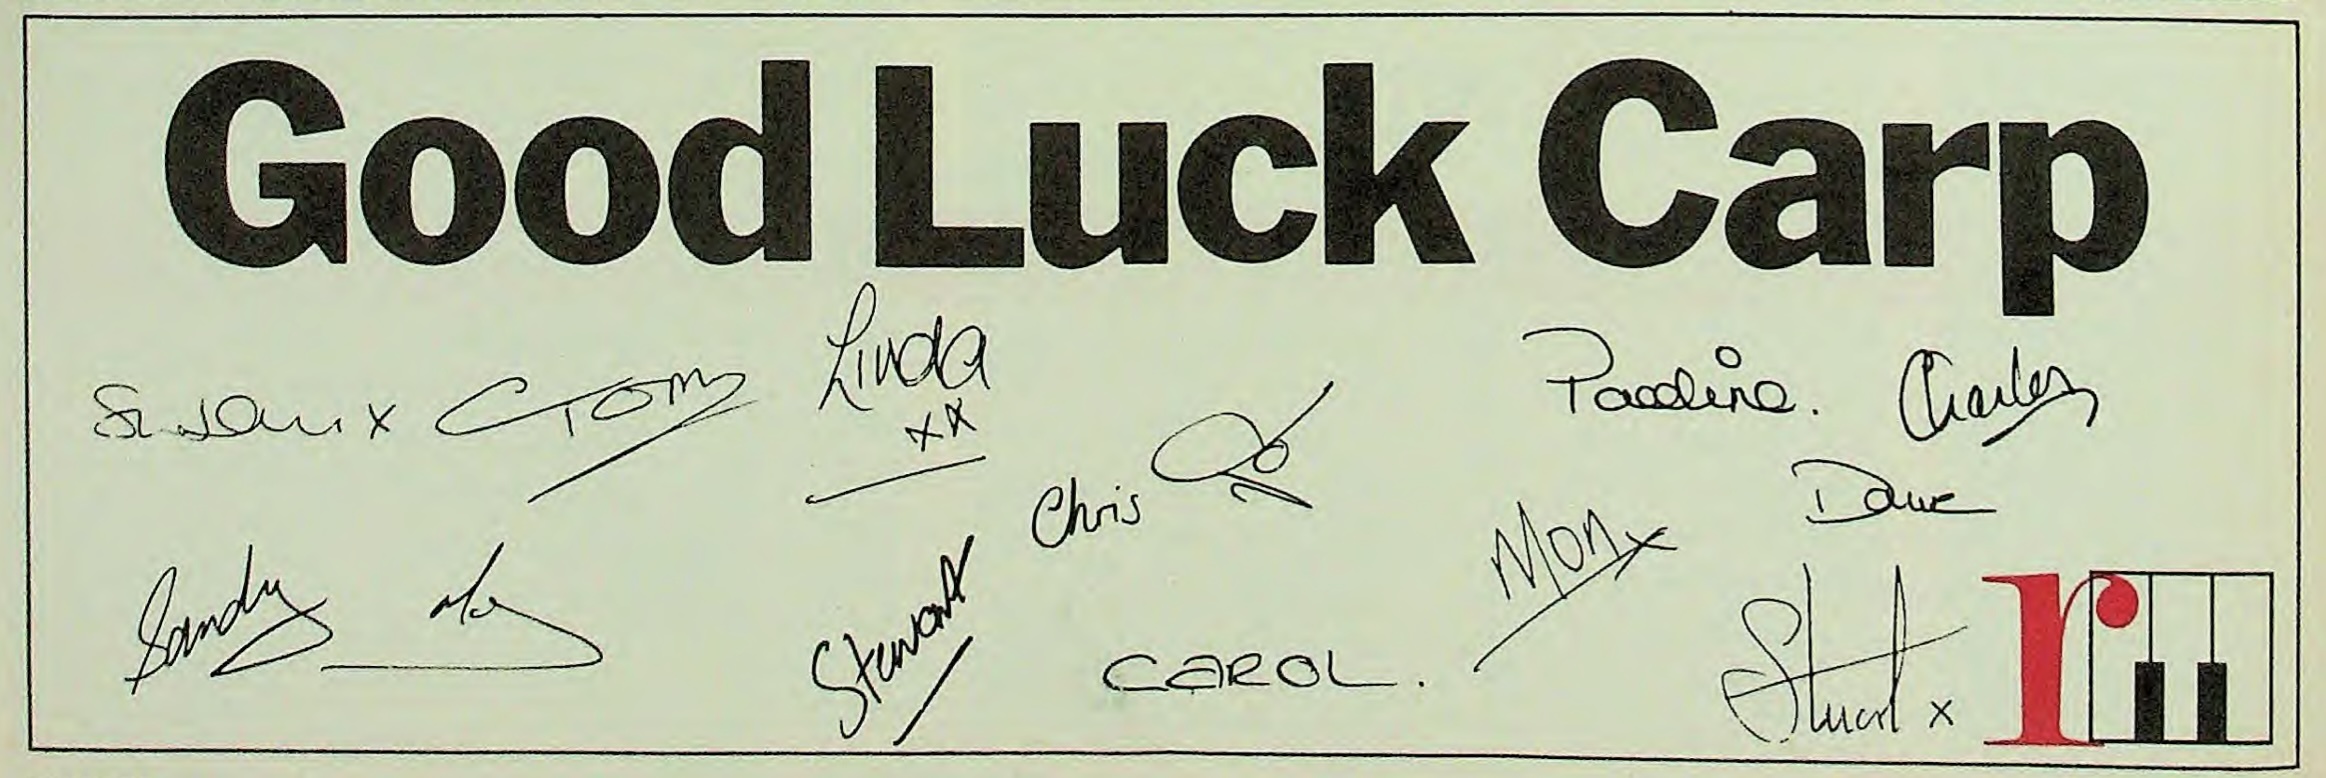 Good Luck Carp
Susan x
Tom
Linda
xx
Pauline.
Charles
Chris
Dave
Mon x
Sandy
Stewart
CAROL.
Stuart x
r